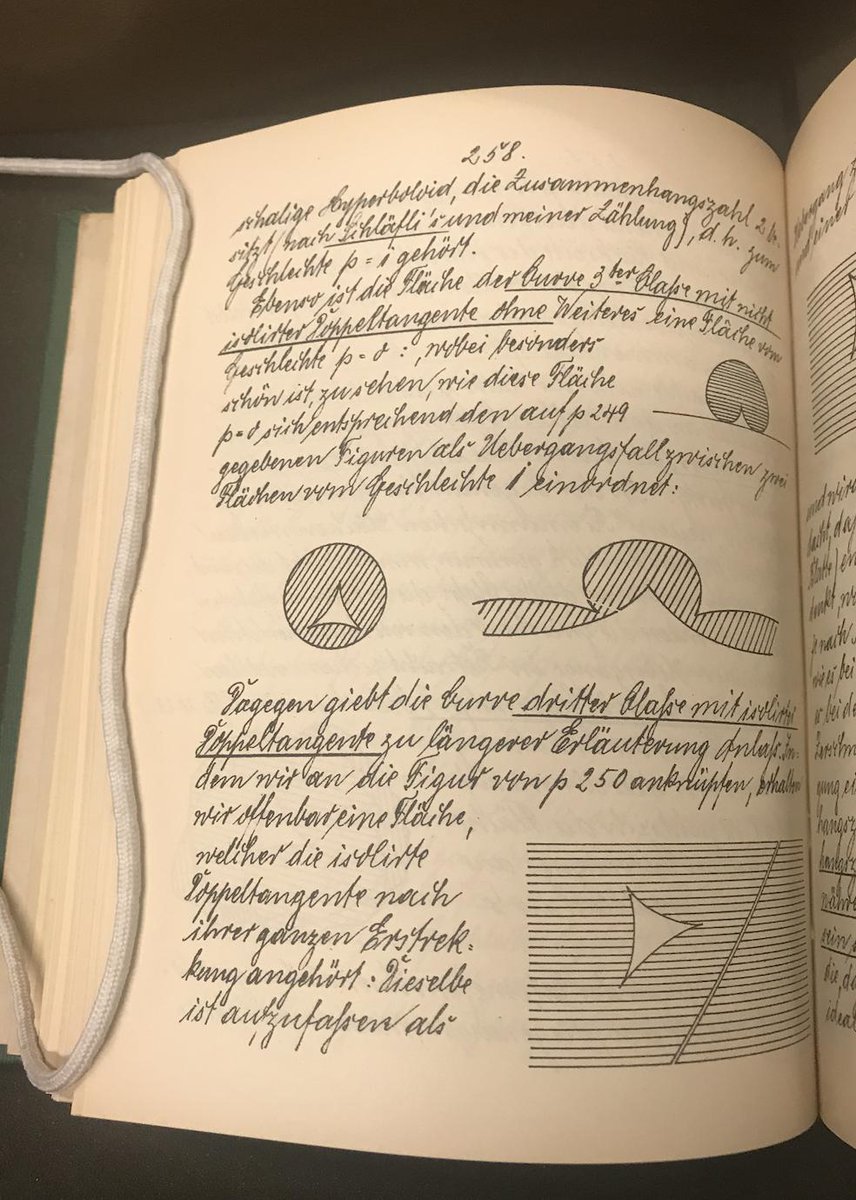 258.
schalige Hyperboloid, die Zusammenhangszahl 2 be-
sitzt (nach Schläfli's und meiner Zählung), d. h. zum
Geschlechte p = 1 gehört.
Ebenso ist die Fläche der Curve 3ter Claße mit nicht
isolirter Doppeltangente ohne Weiteres eine Fläche vom
Geschlechte p = 0 :, wobei besonders
schön ist, zu sehen, wie diese Fläche
p = 0 sich entsprechend den auf p 249
gegebenen Figuren als Uebergangsfall zwischen zwei
Flächen vom Geschlechte 1 einordnet:
Dagegen giebt die Curve dritter Claße mit isolirter
Doppeltangente zu längerer Erläuterung Anlaß. In-
dem wir an die Figur von p 250 anknüpfen, erhalten
wir offenbar eine Fläche,
welcher die isolirte
Doppeltangente nach
ihrer ganzen Erstrek-
kung angehört: Dieselbe
ist aufzufaßen als
Uebergang
und einer